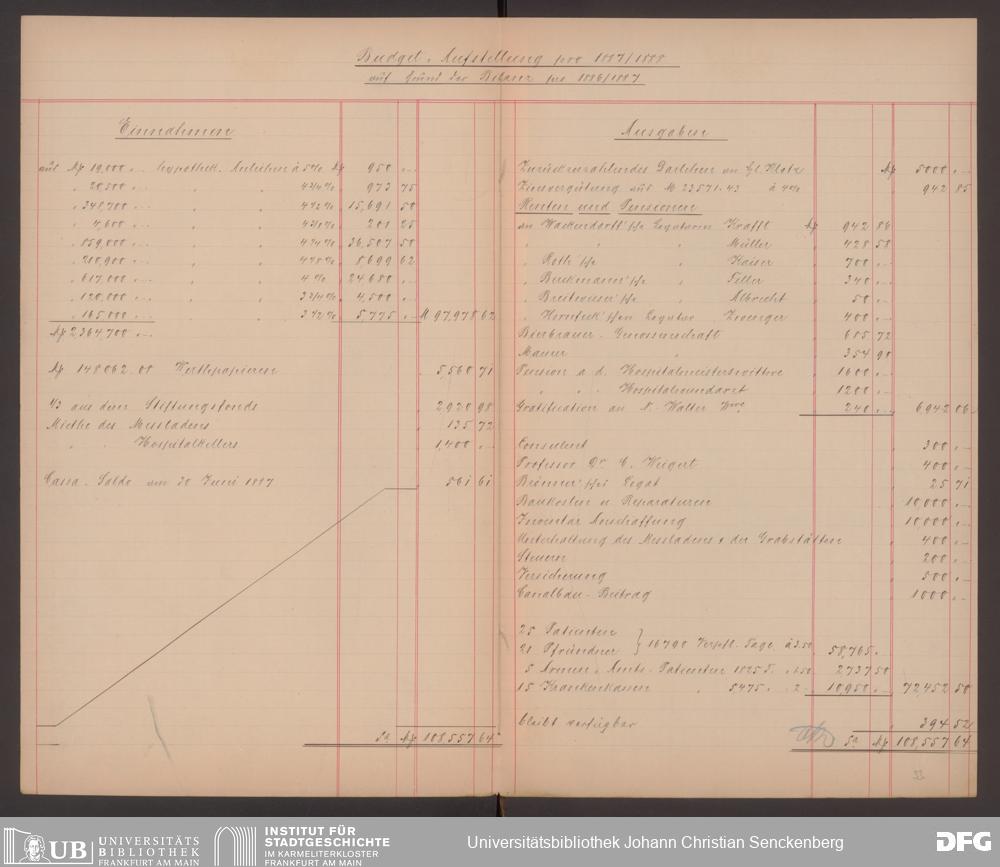 Budget-Aufstellung pro 1887/1888
auf Grund der Bilanz pro 1886/1887
Einnahmen
aus M 19,000 hypothek. Anleihen à 5% M 950
" 20,500 " " 4¾% " 973 75
" 348,700 " " 4½% " 15,691 50
" 4,600 " " " 201 25
" 859,000 " " 4¼% " 36,507 50
" " " 8,699 62
" 617,000 " " 4% " 24,680
" 120,000 " " 3¾% " 4,500
" 165,000 " " 3½% " 5,775 M 97,978 62
M 2,364,700
M 148,062.08 Werthpapieren " 5,560 71
⅓ aus dem Stiftungsfonds " 2,920 98
Miethe des Messladens " 135 72
" " Hospitalkellers " 1,400
Cassa-Saldo am 30 Juni 1887 " 561 61
Sa M 108,557 64
Ausgaben
Zurückzuzahlendes Darlehen an Klotz M 5000
Zinsvergütung aus M 23571.43 à 4% " 942 85
Renten und Pensionen
an Wackendorff'sche Legatarin Krafft M 942 86
" " " Müller " 428 58
" Roth'sche " Kaiser " 700
" Beckmann'sche " Feller " 340
" " Albrecht " 50
" Legatar Zwerger " 400
Bierbrauer-Genossenschaft " 685 72
Maurer " " 354 90
Pension a. d. Hospitalmeisterswittwe " 1600
" " " Hospitalwundarzt " 1200
Gratification an Walter Wwe " 240 " 6,942 06
Consulent " 300
Professor Dr. C. Weigert " 400
Brönner'sches Legat " 25 71
Baukosten u Reparaturen " 10,000
Inventar Anschaffung " 10,000
Unterhaltung des Messladens & der Grabstätten " 400
Steuern " 200
Versicherung " 500
Canalbau-Beitrag " 1000
25 Patienten
21 Pfründner } 16790 Verpfl. Tage à 3.50 " 58,765
5 Armen & Amts-Patienten 1825 T. " 1.50 " 2737 50
15 Krankenkassen " 5475 " " 2 " 10,950 " 72,452 50
bleibt verfügbar " 394 52
Sa M 108,557 64
UB UNIVERSITÄTS
BIBLIOTHEK
FRANKFURT AM MAIN
INSTITUT FÜR
STADTGESCHICHTE
IM KARMELITERKLOSTER
FRANKFURT AM MAIN
Universitätsbibliothek Johann Christian Senckenberg
DFG